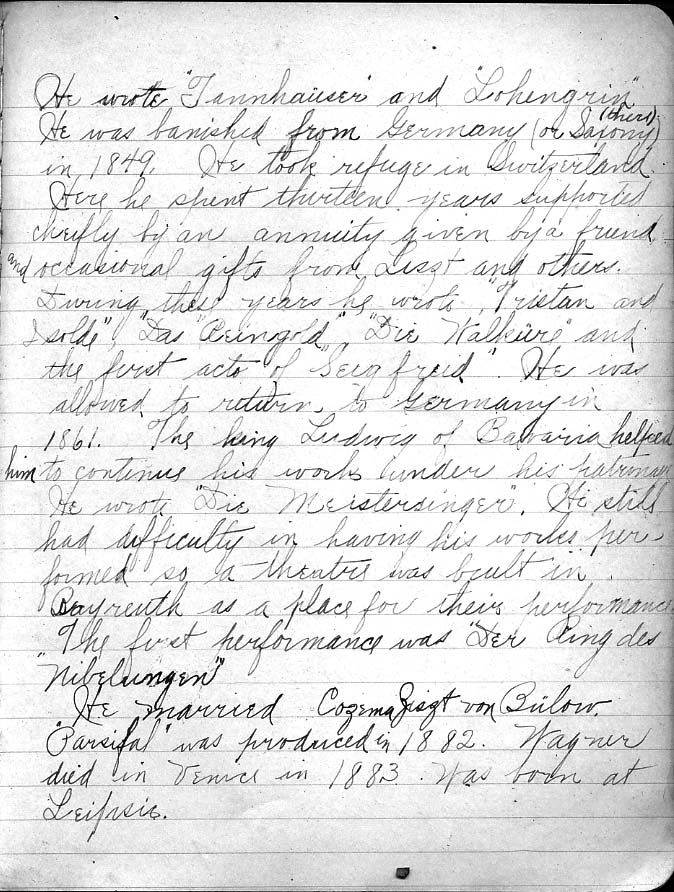 He wrote "Tannhaüser" and "Lohengrin"
He was banished from Germany (or Saxony) (there)
in 1849. He took refuge in Switzerland.
Here he spent thirteen years supported
cheifly by an annuity given by a friend
and occasional gifts from Liszt and others.
During these years he wrote, "Tristan and
Isolde", "Das Reingold", "Die Walküre" and
the first acts of "Seigfreid". He was
allowed to return to Germany in
1861. The king Ludwig of Bavaria helped
him to continue his works under his
He wrote "Die Meistersinger". He still
had difficulty in having his works per-
formed so a theatre was built in
Bayreuth as a place for their performance.
The first performance was "Der Ring des
"Nibelungen"
He married Cozema Liszt von Bülow.
"Parsifal" was produced in 1882. Wagner
died in Venice in 1883. Was born at
Leipsic.